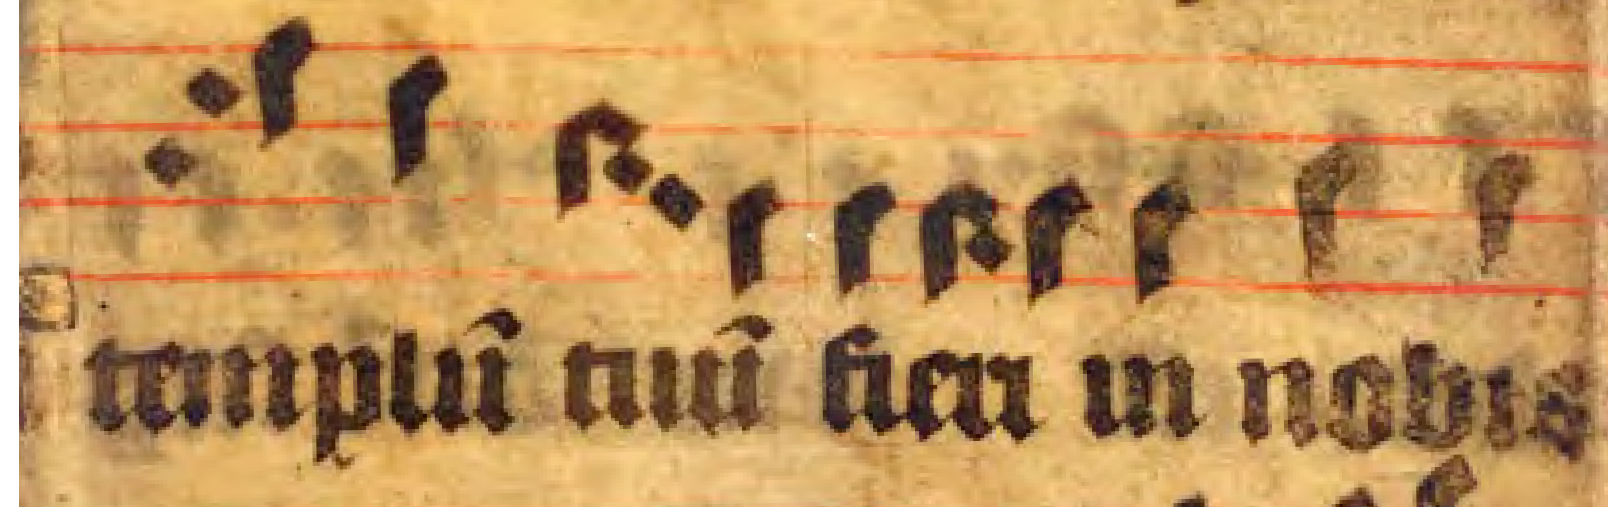 templū tuū fieri in nobis